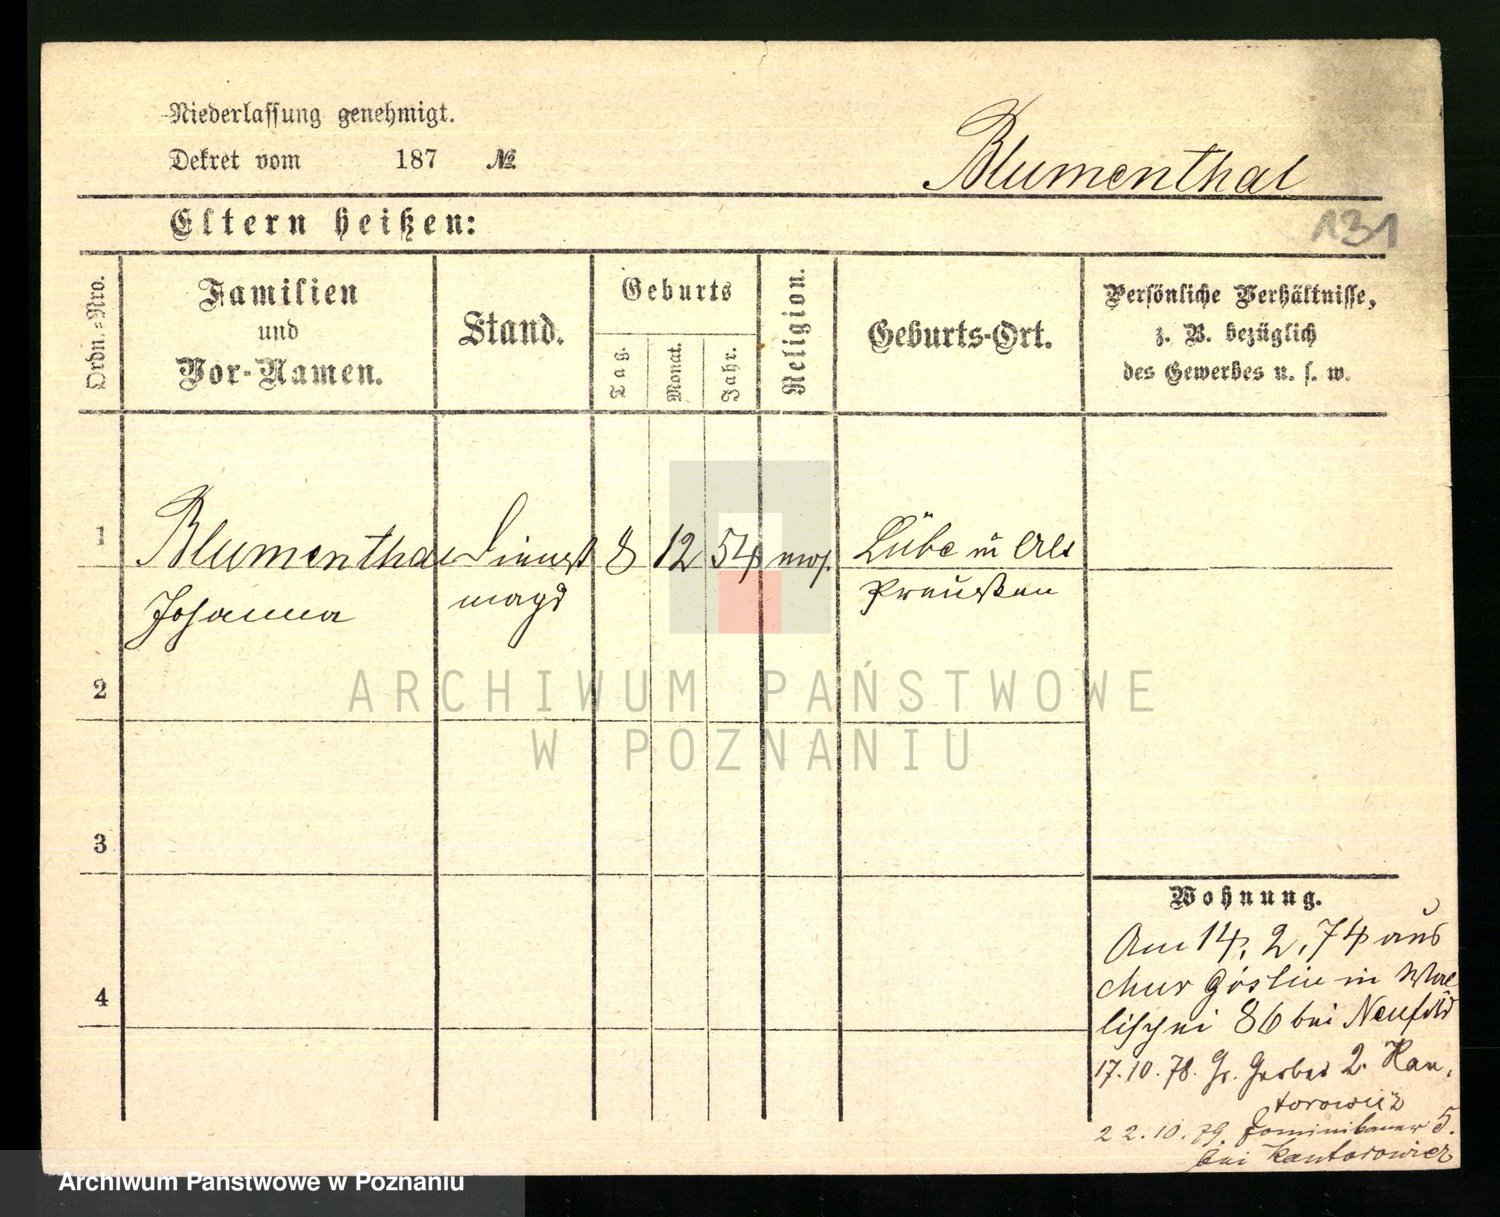 Niederlassung genehmigt.
Dekret vom 187 №
Blumenthal
Eltern heißen:
131
Ordn.=Nro.
Familien
und
Vor-Namen.
Stand.
Geburts
Tag.
Monat.
Jahr.
Religion.
Geburts-Ort.
Persönliche Verhältnisse,
z. B. bezüglich
des Gewerbes u. s. w.
1
Blumenthal Dienst 8 12 54 mos. Lübe in
Johanna magd Preußen
2
ARCHIWUM PAŃSTWOWE
W POZNANIU
3
4
Wohnung.
Am 14. 2. 74 aus
Goslin in Wal
lischei 86 bei Neufeld
17.10.78. Gr. Gerber 2. Kan,
torowicz
22.10.79. Dominikaner 5.
bei Kantorowicz
Archiwum Państwowe w Poznaniu